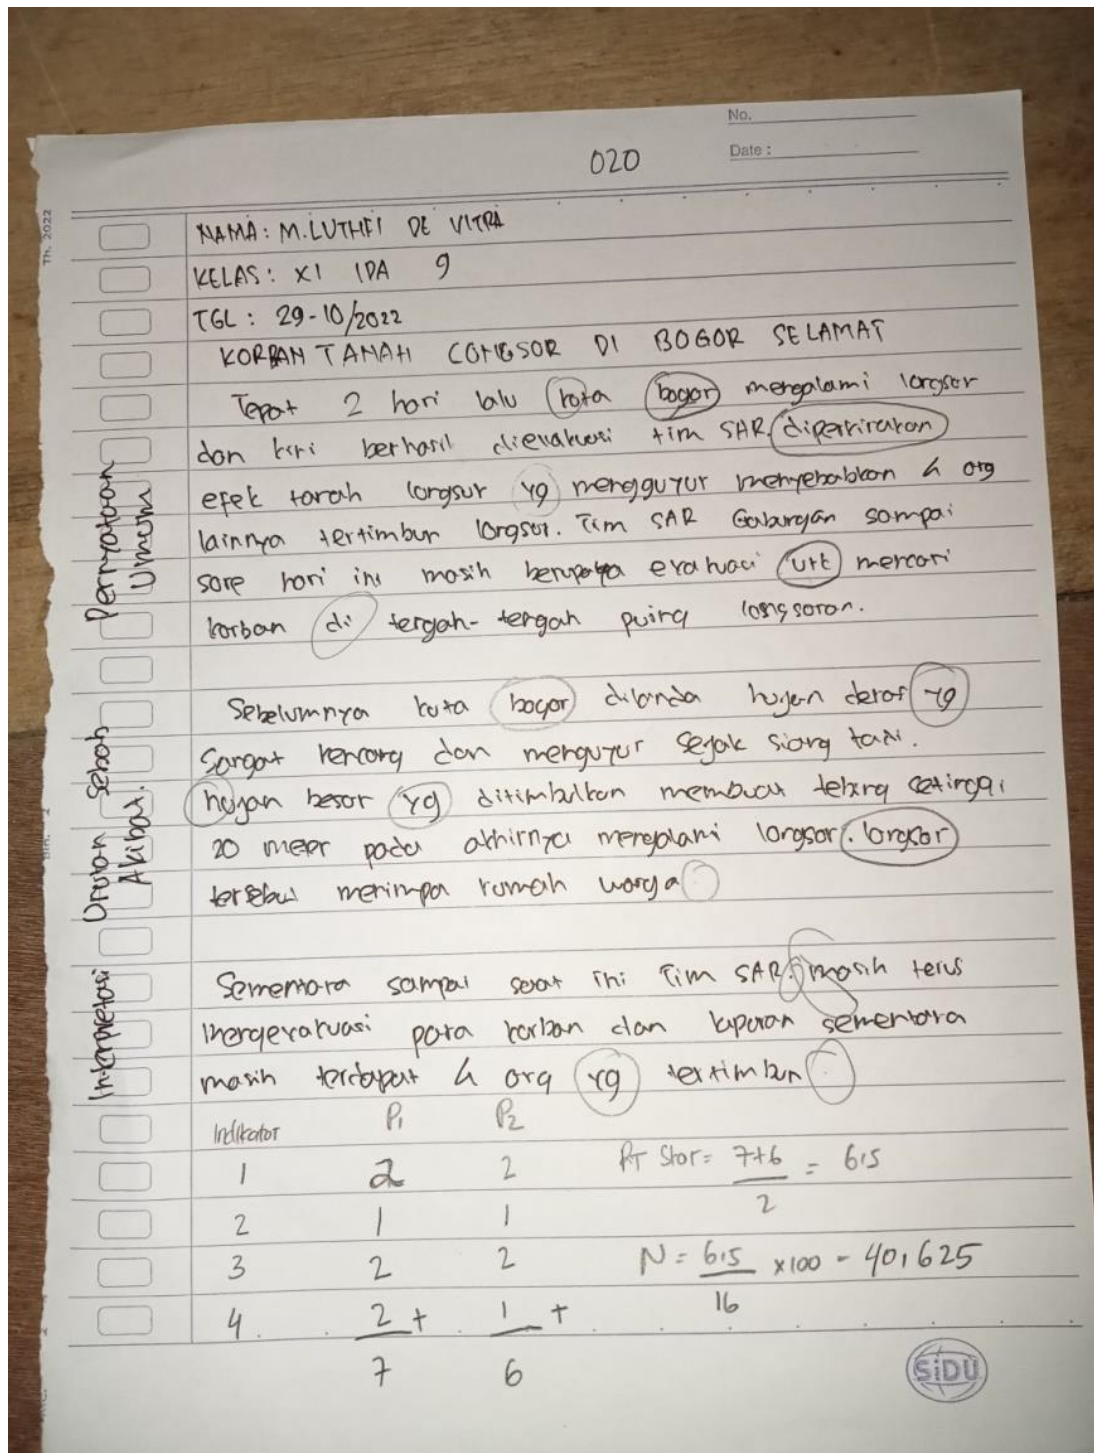 No.
Date :
020
Th. 2022
NAMA : M. LUTHFI DE VITRA
KELAS : XI IPA 9
TGL : 29-10/2022
KORBAN TANAH LONGSOR DI BOGOR SELAMAT
Tepat 2 hari lalu kota bogor mengalami longsor
dan kini berhasil dievakuasi tim SAR. diperkirakan
efek tanah longsor yg mengguyur menyebabkan 4 org
lainnya tertimbun longsor. Tim SAR Gabungan sampai
sore hari ini masih berupaya evakuasi utk mencari
korban di tengah-tengah puing longsoran.
Pernyataan
Umum
Sebelumnya kota bogor dilanda hujan deras yg
Sangat kencang dan menguyur sejak siang tadi.
hujan besar yg ditimbulkan membuat tebing setinggi
20 meer pada akhirnya mengalami longsor. longsor
tersebut menimpa rumah warga
Urutan Sebab
Akibat.
Sementara sampai saat ini Tim SAR. masih terus
mengevakuasi para korban dan laporan sementara
masih terdapat 4 org yg tertimbun
Interpretasi
Indikator P1 P2
1 2 2 RT Skor = 7+6 / 2 = 6,5
2 1 1
3 2 2 N = 6,5 / 16 x100 = 40,625
4 2 + 1 +
7 6
SiDU